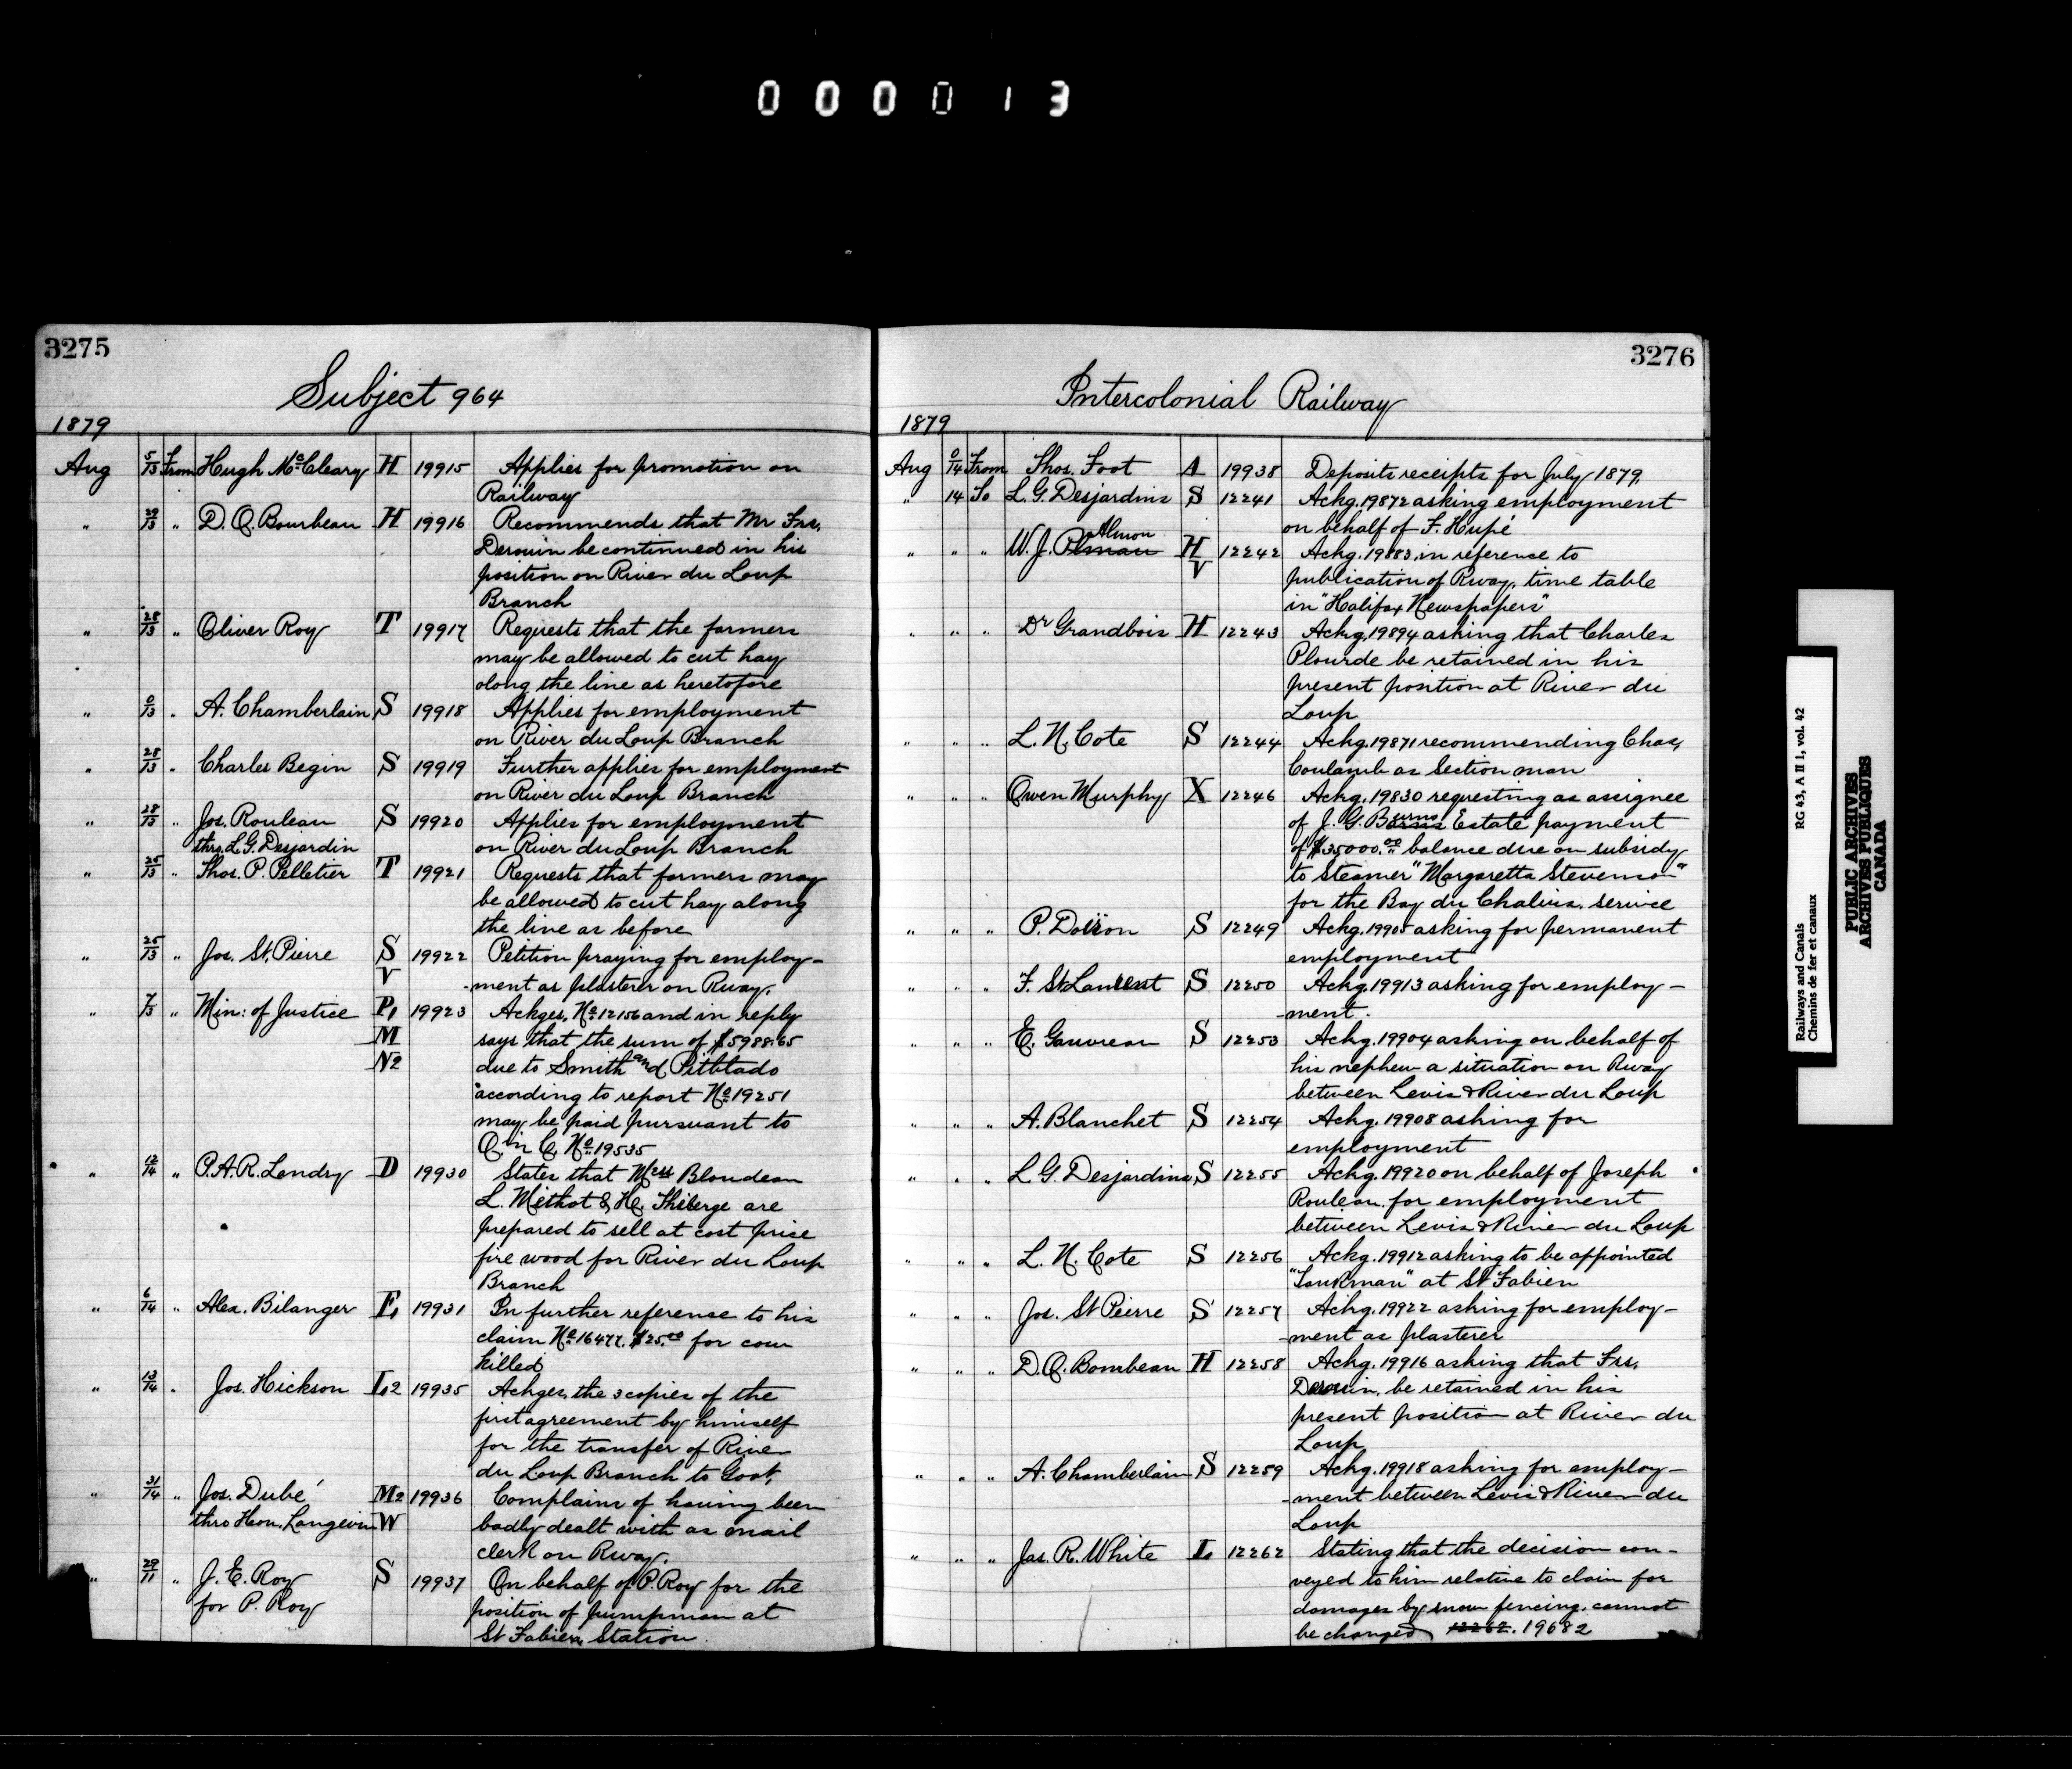 000013
3275
Subject 964
1879
Aug 5/13 From Hugh McCleary H 19915 Applies for promotion on
Railway
" 29/13 " D. O. Bourbeau H 19916 Recommends that Mr Frs.
Derouin be continued in his
position on River du Loup
Branch
" 28/13 " Oliver Roy T 19917 Requests that the farmers
may be allowed to cut hay
along the line as heretofore
" 0/13 " A. Chamberlain S 19918 Applies for employment
on River du Loup Branch
" 28/13 " Charles Begin S 19919 Further applies for employment
on River du Loup Branch
" 28/13 " Jos. Rouleau S 19920 Applies for employment
thro. L. G. Desjardin on River du Loup Branch
" 25/13 " Thos. P. Pelletier T 19921 Requests that farmers may
be allowed to cut hay along
the line as before
" 25/13 " Jos. St. Pierre S 19922 Petition praying for employ-
V -ment as plasterer on Rway.
" 7/13 " Min: of Justice P1 19923 Ackges. No. 12156 and in reply
M says that the sum of $5988.65
N2 due to Smith and Pitblado
according to report No. 19251
may be paid pursuant to
O. in C. No. 19535
" 12/14 " P. A. R. Landry D 19930 States that Mess Blondeau
L. Methot & He. Thiberge are
prepared to sell at cost price
fire wood for River du Loup
Branch
" 6/14 " Alex. Bilanger F1 19931 In further reference to his
claim No. 16477. $25.00 for cow
killed
" 13/14 " Jos. Hickson L2 19935 Ackges. the 3 copies of the
first agreement by himself
for the transfer of River
du Loup Branch to Govt.
" 31/14 " Jos. Dubé M2 19936 Complains of having been
thro Hon. Langevin W badly dealt with as mail
clerk on Rway.
" 29/11 " J. E. Roy S 19937 On behalf of P. Roy for the
for P. Roy position of pumpman at
St Fabien Station.
3276
Intercolonial Railway
1879
Aug 0/14 From Thos. Foot A 19938 Deposits receipts for July 1879.
" 14 To L. G. Desjardins S 12241 Ackg. 19872 asking employment
on behalf of F. Hupé
" " " W. J. Almon H 12242 Ackg. 19883 in reference to
V publication of Rway. time table
in "Halifax Newspapers"
" " " Dr Grandbois H 12243 Ackg. 19894 asking that Charles
Plourde be retained in his
present position at River du
Loup
" " " L. N. Cote S 12244 Ackg. 19871 recommending Chas.
Coulamb as Section man
" " " Owen Murphy X 12246 Ackg. 19830 requesting as assignee
of J. G. Burns Estate payment
of $35000.00 balance due on subsidy
to Steamer "Margaretta Stevenson"
for the Bay du Chalius. service
" " " P. Doiron S 12249 Ackg. 19905 asking for permanent
employment
" " " F. St Laurent S 12250 Ackg. 19913 asking for employ-
-ment.
" " " E. Gauvreau S 12253 Ackg. 19904 asking on behalf of
his nephew a situation on Rway
between Levis & River du Loup
" " " A. Blanchet S 12254 Ackg. 19908 asking for
employment
" " " L. G. Desjardins S 12255 Ackg. 19920 on behalf of Joseph
Rouleau for employment
between Levis & River du Loup
" " " L. N. Cote S 12256 Ackg. 19912 asking to be appointed
"Tankman" at St Fabien
" " " Jos. St Pierre S 12257 Ackg. 19922 asking for employ-
-ment as plasterer
" " " D. O. Bourbeau H 12258 Ackg. 19916 asking that Frs.
Derouin. be retained in his
present position at River du
Loup
" " " A. Chamberlain S 12259 Ackg. 19918 asking for employ-
-ment between Levis & River du
Loup
" " " Jas. R. White L 12262 Stating that the decision con-
veyed to him relative to claim for
damages by snow fencing. cannot
be changed 12262. 19682
Railways and Canals RG 43, A II 1, vol. 42
Chemins de fer et canaux
PUBLIC ARCHIVES
ARCHIVES PUBLIQUES
CANADA